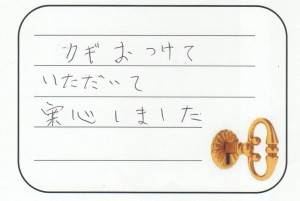 カギおつけて
いただいて
案心しました